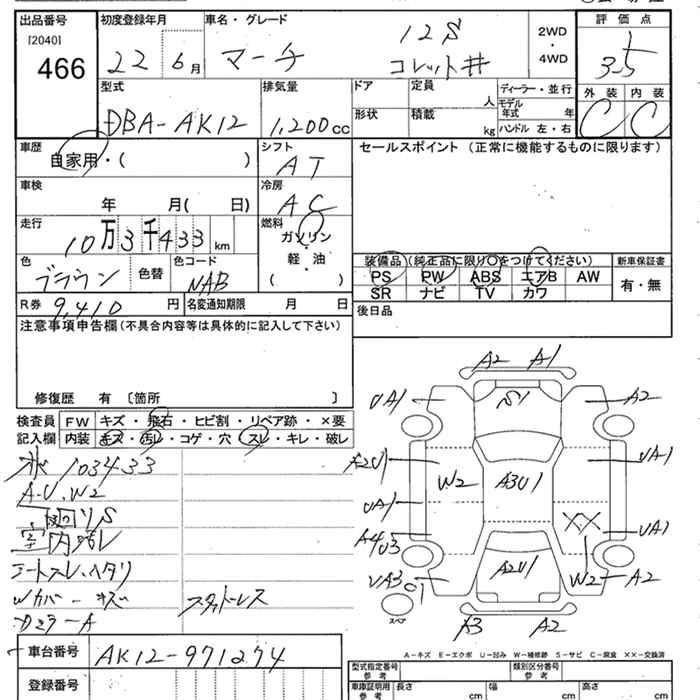 出品番号 初度登録年月 車名・グレード 評価点
[2040]
466
22年 6月 マーチ 12S コレット 2WD・4WD 3.5
型式 排気量 ドア 定員 人 ディーラー・並行 外装 内装
DBA-AK12 1,200cc 形状 積載 kg モデル年式 年 ハンドル 左・右 C C
車歴 自家用・( ) シフト AT セールスポイント (正常に機能するものに限ります)
車検 年 月( 日) 冷房 AC
走行 10万3千433km 燃料 ガソリン・軽・油( )
色 ブラウン 色替 色コード NAB
装備品 (純正品に限り○をつけてください) 新車保証書
PS PW ABS エアB AW 有・無
SR ナビ TV カワ
R券 9,410円 名変通知期限 月 日 後日品
注意事項申告欄(不具合内容等は具体的に記入して下さい)
修復歴 有 〔箇所 〕
検査員記入欄 FW キズ・飛石・ヒビ割・リペア跡・×要
内装 キズ・汚レ・コゲ・穴・スレ・キレ・破レ
103433
A・U・W2
下廻りS
室内汚レ
シートスレ、ヘタリ
Wカバーキズ スタッドレス
DミラーA
A2 A1
UA1 S1 A2
A2U1 W2 A3U1 UA1
UA1 XX UA1
A4U3 A2U1
UA3 C1 W2 A2
スペア A3 A2
A-キズ E-エクボ U-凹み W-補修跡 S-サビ C-腐食 ××-交換済
車台番号 AK12-971274
型式指定番号 参考 類別区分番号 参考
登録番号 車庫証明用参考 長さ cm 幅 cm 高さ cm